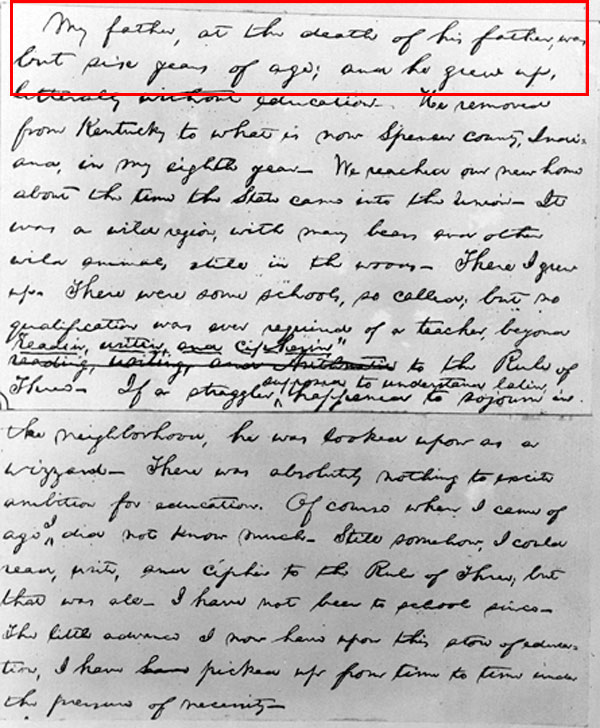 My father, at the death of his father, was
but six years of age; and he grew up,
litterally without education. He removed
from Kentucky to what is now Spencer county, Indi-
ana, in my eighth year. We reached our new home
about the time the State came into the Union. It
was a wild region, with many bears and other
wild animals, still in the woods. There I grew
up. There were some schools, so called; but no
qualification was ever required of a teacher, beyond
"readin, writin, and cipherin"
reading, writing, and Arithmetic to the Rule of
supposed to understand latin,
Three. If a straggler happened to sojourn in
the neighborhood, he was looked upon as a
wizzard. There was absolutely nothing to excite
ambition for education. Of course when I came of
age I did not know much. Still somehow, I could
read, write, and cipher to the Rule of Three; but
that was all. I have not been to school since.
The little advance I now have upon this store of educa-
tion, I have picked up from time to time under
the pressure of necessity.